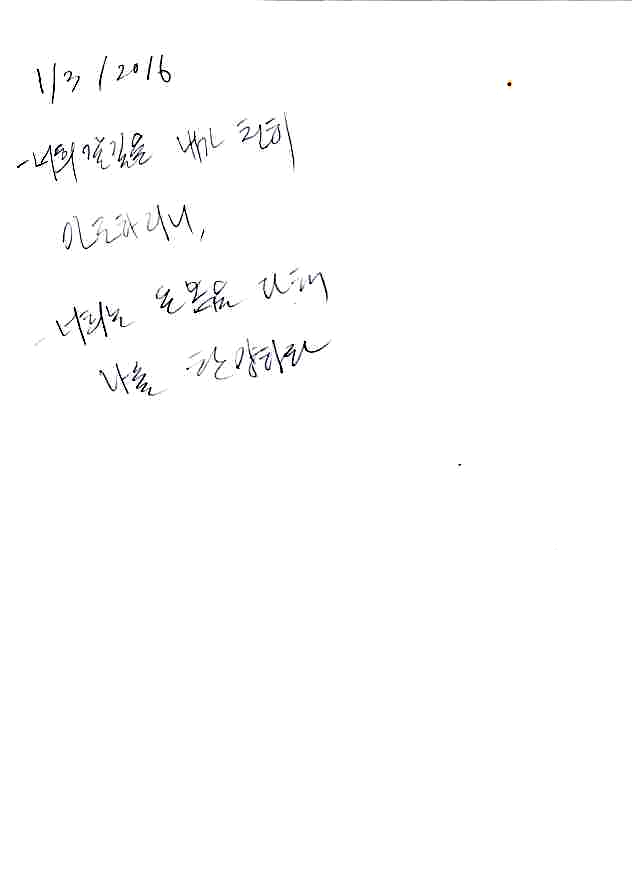 1/3/2016
- 너희 갈길을 내가 친히
인도하리니,
- 너희는 온몸을 다해
나를 찬양하라